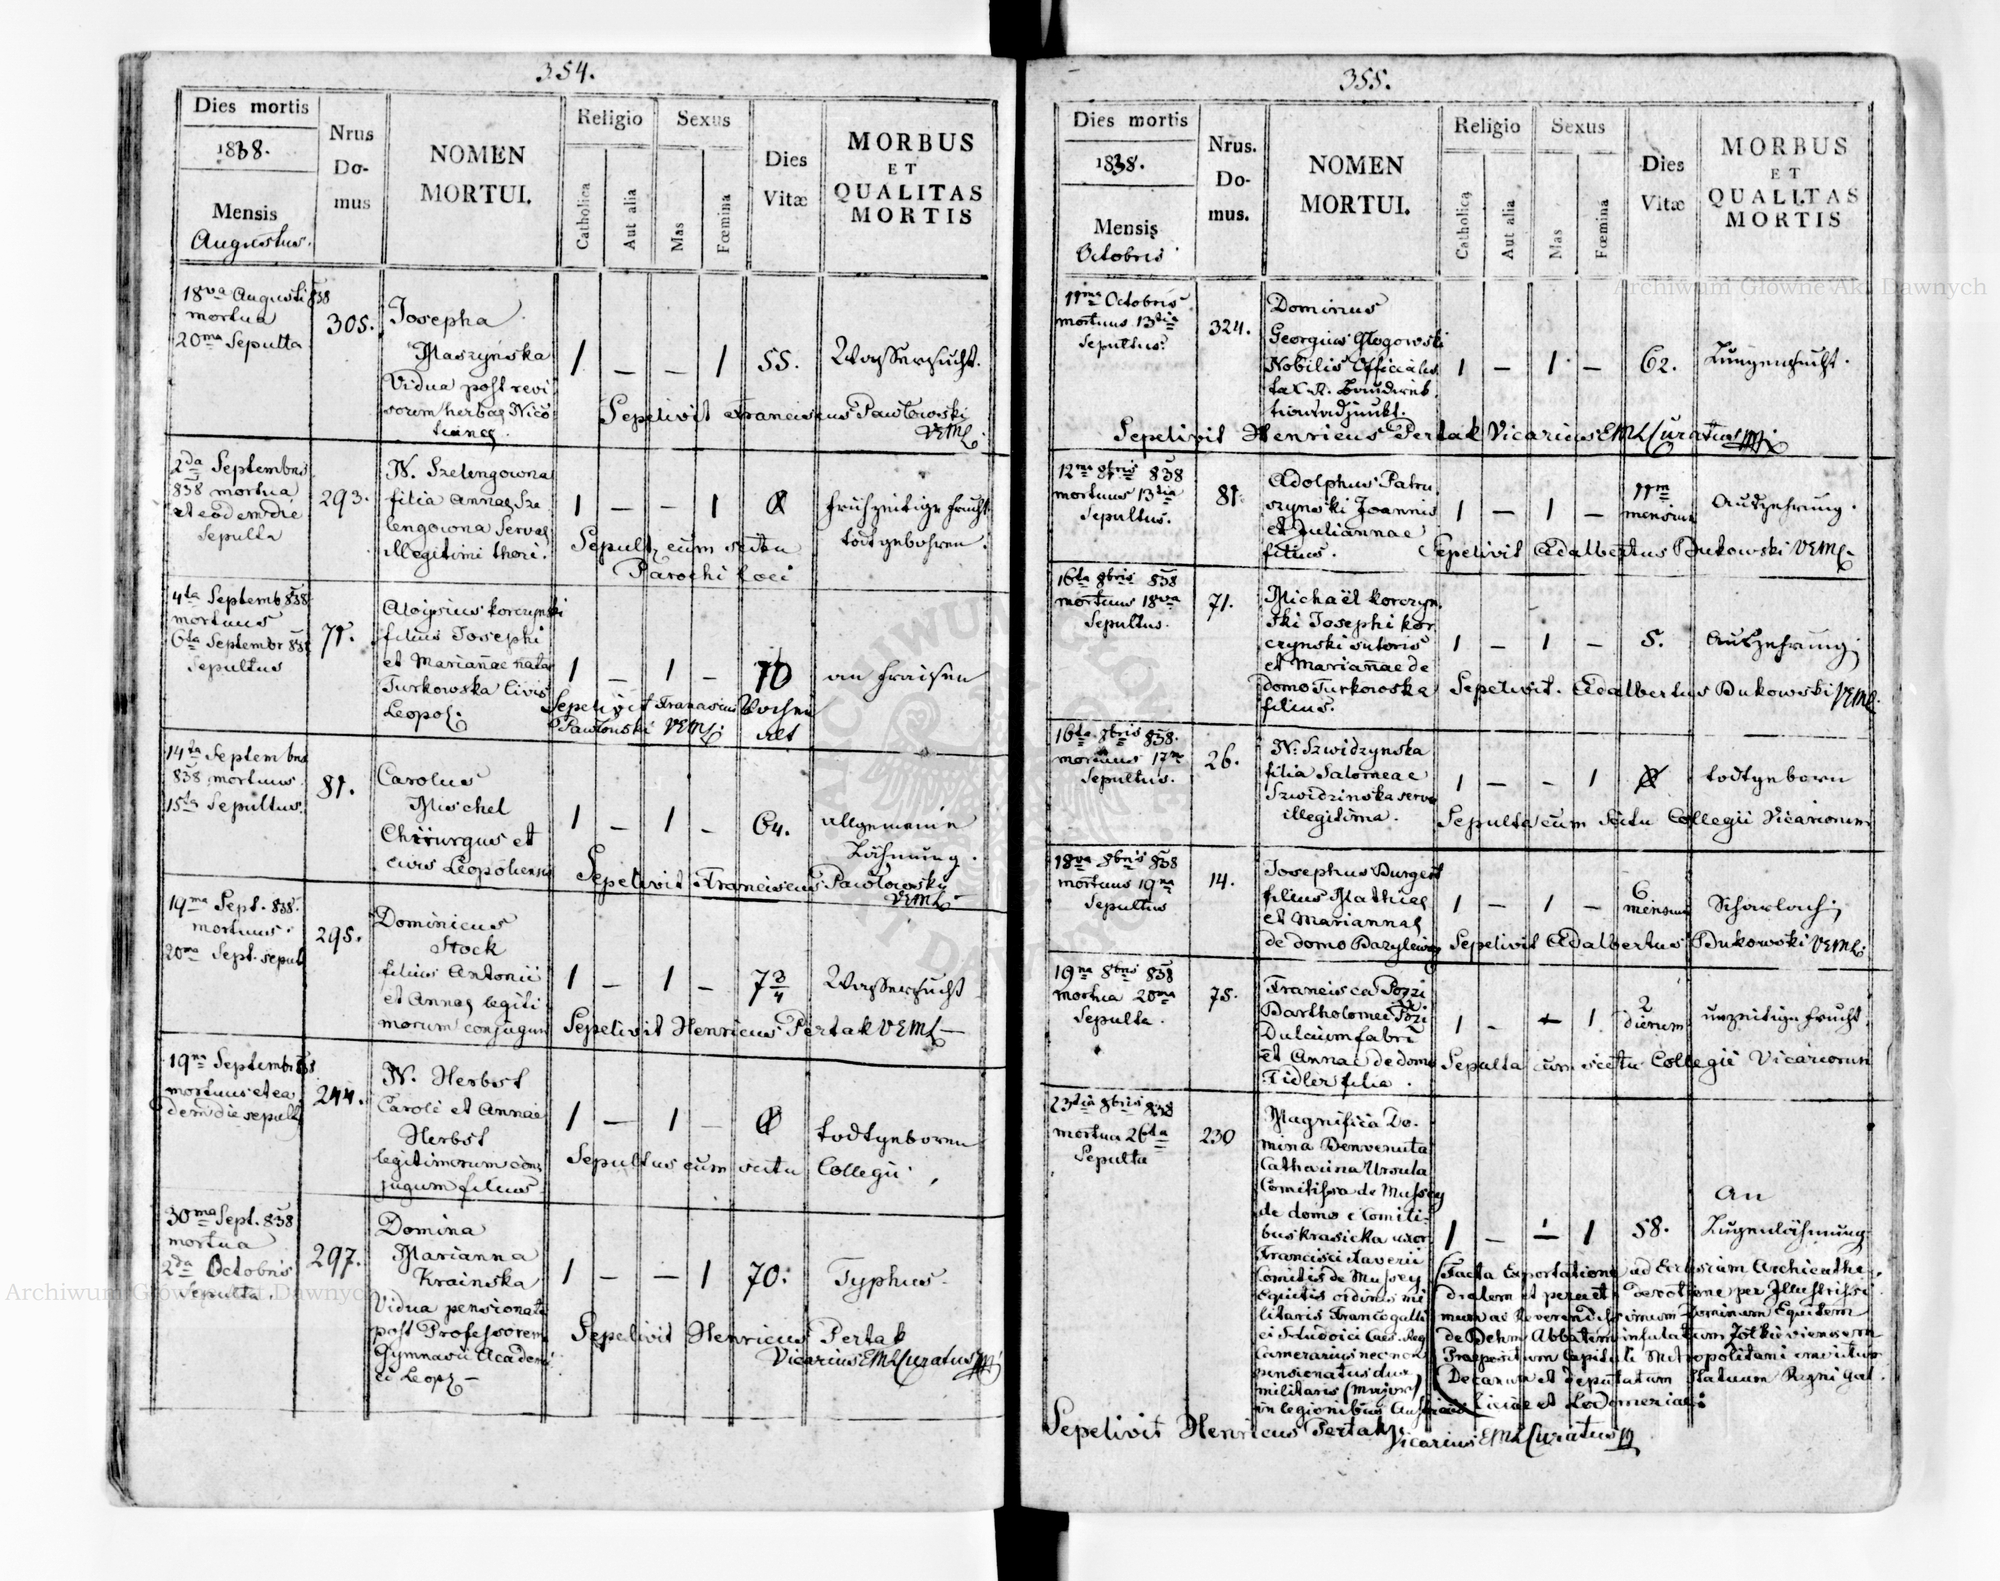 354.
Dies mortis
1838.
Mensis
Augustus.
Nrus
Do-
mus
NOMEN
MORTUI.
Religio
Catholica
Aut alia
Sexus
Mas
Fœmina
Dies
Vitæ
MORBUS
ET
QUALITAS
MORTIS
18va Augusti 838
mortua
20ma Sepulta
305.
Josepha
Maszyńska
Vidua post revi
sorem herbae Nico
tianae.
1 — — 1 55. Wassersucht.
Sepelivit Franciscus Pawłowski
VEML.
2da Septembris
838 mortua
et eodem die
Sepulta
293.
N. Szelengowna
filia Annae Sze
lengowna Servae
illegitimi thori.
1 — — 1 0
frühzeitige Frucht
todtgebohren.
Sepult. cum scitu
Parochi Loci
4ta Septemb 838
mortuus
6ta Septembr 838
Sepultus
71.
Aloysius Korczynski
filius Josephi
et Mariañae nata
Turkowska Civis
Leopol.
1 — 1 — 10
Wochen
alt
an Fraisen
Sepelivit Franciscus
Pawłowski VEML.
14ta Septembris
838 mortuus.
15ta Sepultus.
81.
Carolus
Mischel
Chirurgus et
civis Leopoliensis
1 — 1 — 64.
allgemeine
Lähmung.
Sepelivit Franciscus Pawłowski
VEML
19ma Sept. 838.
mortuus.
20ma Sept. sepult
295.
Dominicus
Stock
filius Antonii
et Annae legiti
morum conjugum
1 — 1 — 7 3/4 Wassersucht
Sepelivit Henricus Pertak VEML —
19na Septembr 838
mortuus et ea
dem die sepult
244.
N. Herbst
Caroli et Annae
Herbst
legitimorum con
jugum filius
1 — 1 — 0 todtgeboren
Sepultus cum scitu Collegii.
30ma Sept. 838
mortua
2da Octobris
Sepulta.
297.
Domina
Marianna
Krainska
Vidua pensionata
post Professorem
Gymnasii Academi
ci Leopl —
1 — — 1 70. Typhus.
Sepelivit Henricus Pertak
Vicarius EML Curatus
355.
Dies mortis
1838.
Mensis
Octobris
Nrus.
Do-
mus.
NOMEN
MORTUI.
Religio
Catholica
Aut alia
Sexus
Mas
Fœmina
Dies
Vitæ
MORBUS
ET
QUALITAS
MORTIS
11ma Octobris
mortuus 13tia
Sepultus.
324.
Dominus
Georgius Głogowski
Nobilis Officialis
1 — 1 — 62. Lungensucht.
Sepelivit Henricus Pertak Vicarius EML Curatus
12ma 8bris 838
mortuus 13tia
Sepultus.
81.
Adolphus Patru
szynski Joannis
et Juliannae
filius.
1 — 1 — 11m
mensium
Auszehrung.
Sepelivit Adalbertus Bukowski VEML
16ta 8bris 838
mortuus 18va
Sepultus.
71.
Michaël Korczyn
ski Josephi Kor
czynski sutoris
et Mariañae de
domo Turkowska
filius.
1 — 1 — 5. Auszehrung
Sepelivit. Adalbertus Bukowski VEML.
16ta 8bris 838.
mortuus 17m
Sepultus.
26.
N. Szwidzynska
filia Salomeae
Szwidzinska serva
illegitima.
1 — — 1 0 todtgeborn
Sepulta cum Scitu Collegii Vicariorum
18va 8bris 838
mortuus 19na
Sepultus
14.
Josephus Burgert
filius Mathiae
et Mariannae
de domo Bazylewicz
1 — 1 — 6
mensium
Scharlach
Sepelivit Adalbertus Bukowski VEML.
19na 8bris 838
mortua 20ma
Sepulta.
75.
Francisca Pozzi
Bartholomei Pozi
Dulcium fabri
et Annae de domo
Fidler filia.
1 — — 1 2
dierum
unzeitige Frucht.
Sepulta cum scitu Collegii Vicariorum
23tia 8bris 838
mortua 26ta
Sepulta
230
Magnifica Do
mina Benvenuta
Catharina Ursula
Comitissa de Mussey
de domo e Comiti
bus Krasicka uxor
Francisci Xaverii
Comitis de Mussey
Equitis ordinis mi
litaris Francogalli
ci S. Ludovici Caes. Reg
Camerarius nec non
pensionatus dux
militaris (Major)
in legionibus Austriacis
1 — — 1 58.
An
Lugenlähmung
Facta Exportatione ad Ecclesiam Archicathe
dralem et peracta devotione per Illustrissi
mum ac Reverendissimum Dominum Equitem
de Behm Abbatem infulatum Żołkieviensem
Praepositum Capituli Metropolitani
Decanum et Deputatum Statuum Regni Gal
liciae et Lodomeriae.
Sepelivit Henricus Pertak
Vicarius EML Curatus
Archiwum Główne Akt Dawnych
Archiwum Główne Akt Dawnych
ARCHIWUM GŁÓWNE AKT DAWNYCH